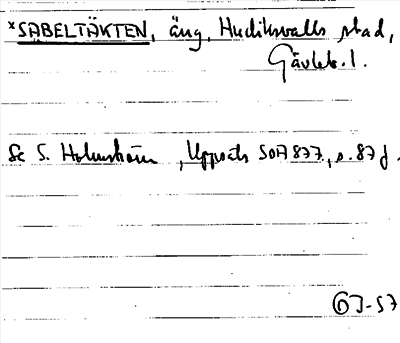 *SABELTÄKTEN, äng, Hudiksvalls stad,
Gävleb. l.
Se S. Holmström, Uppsats SOA 877, s. 87 f.